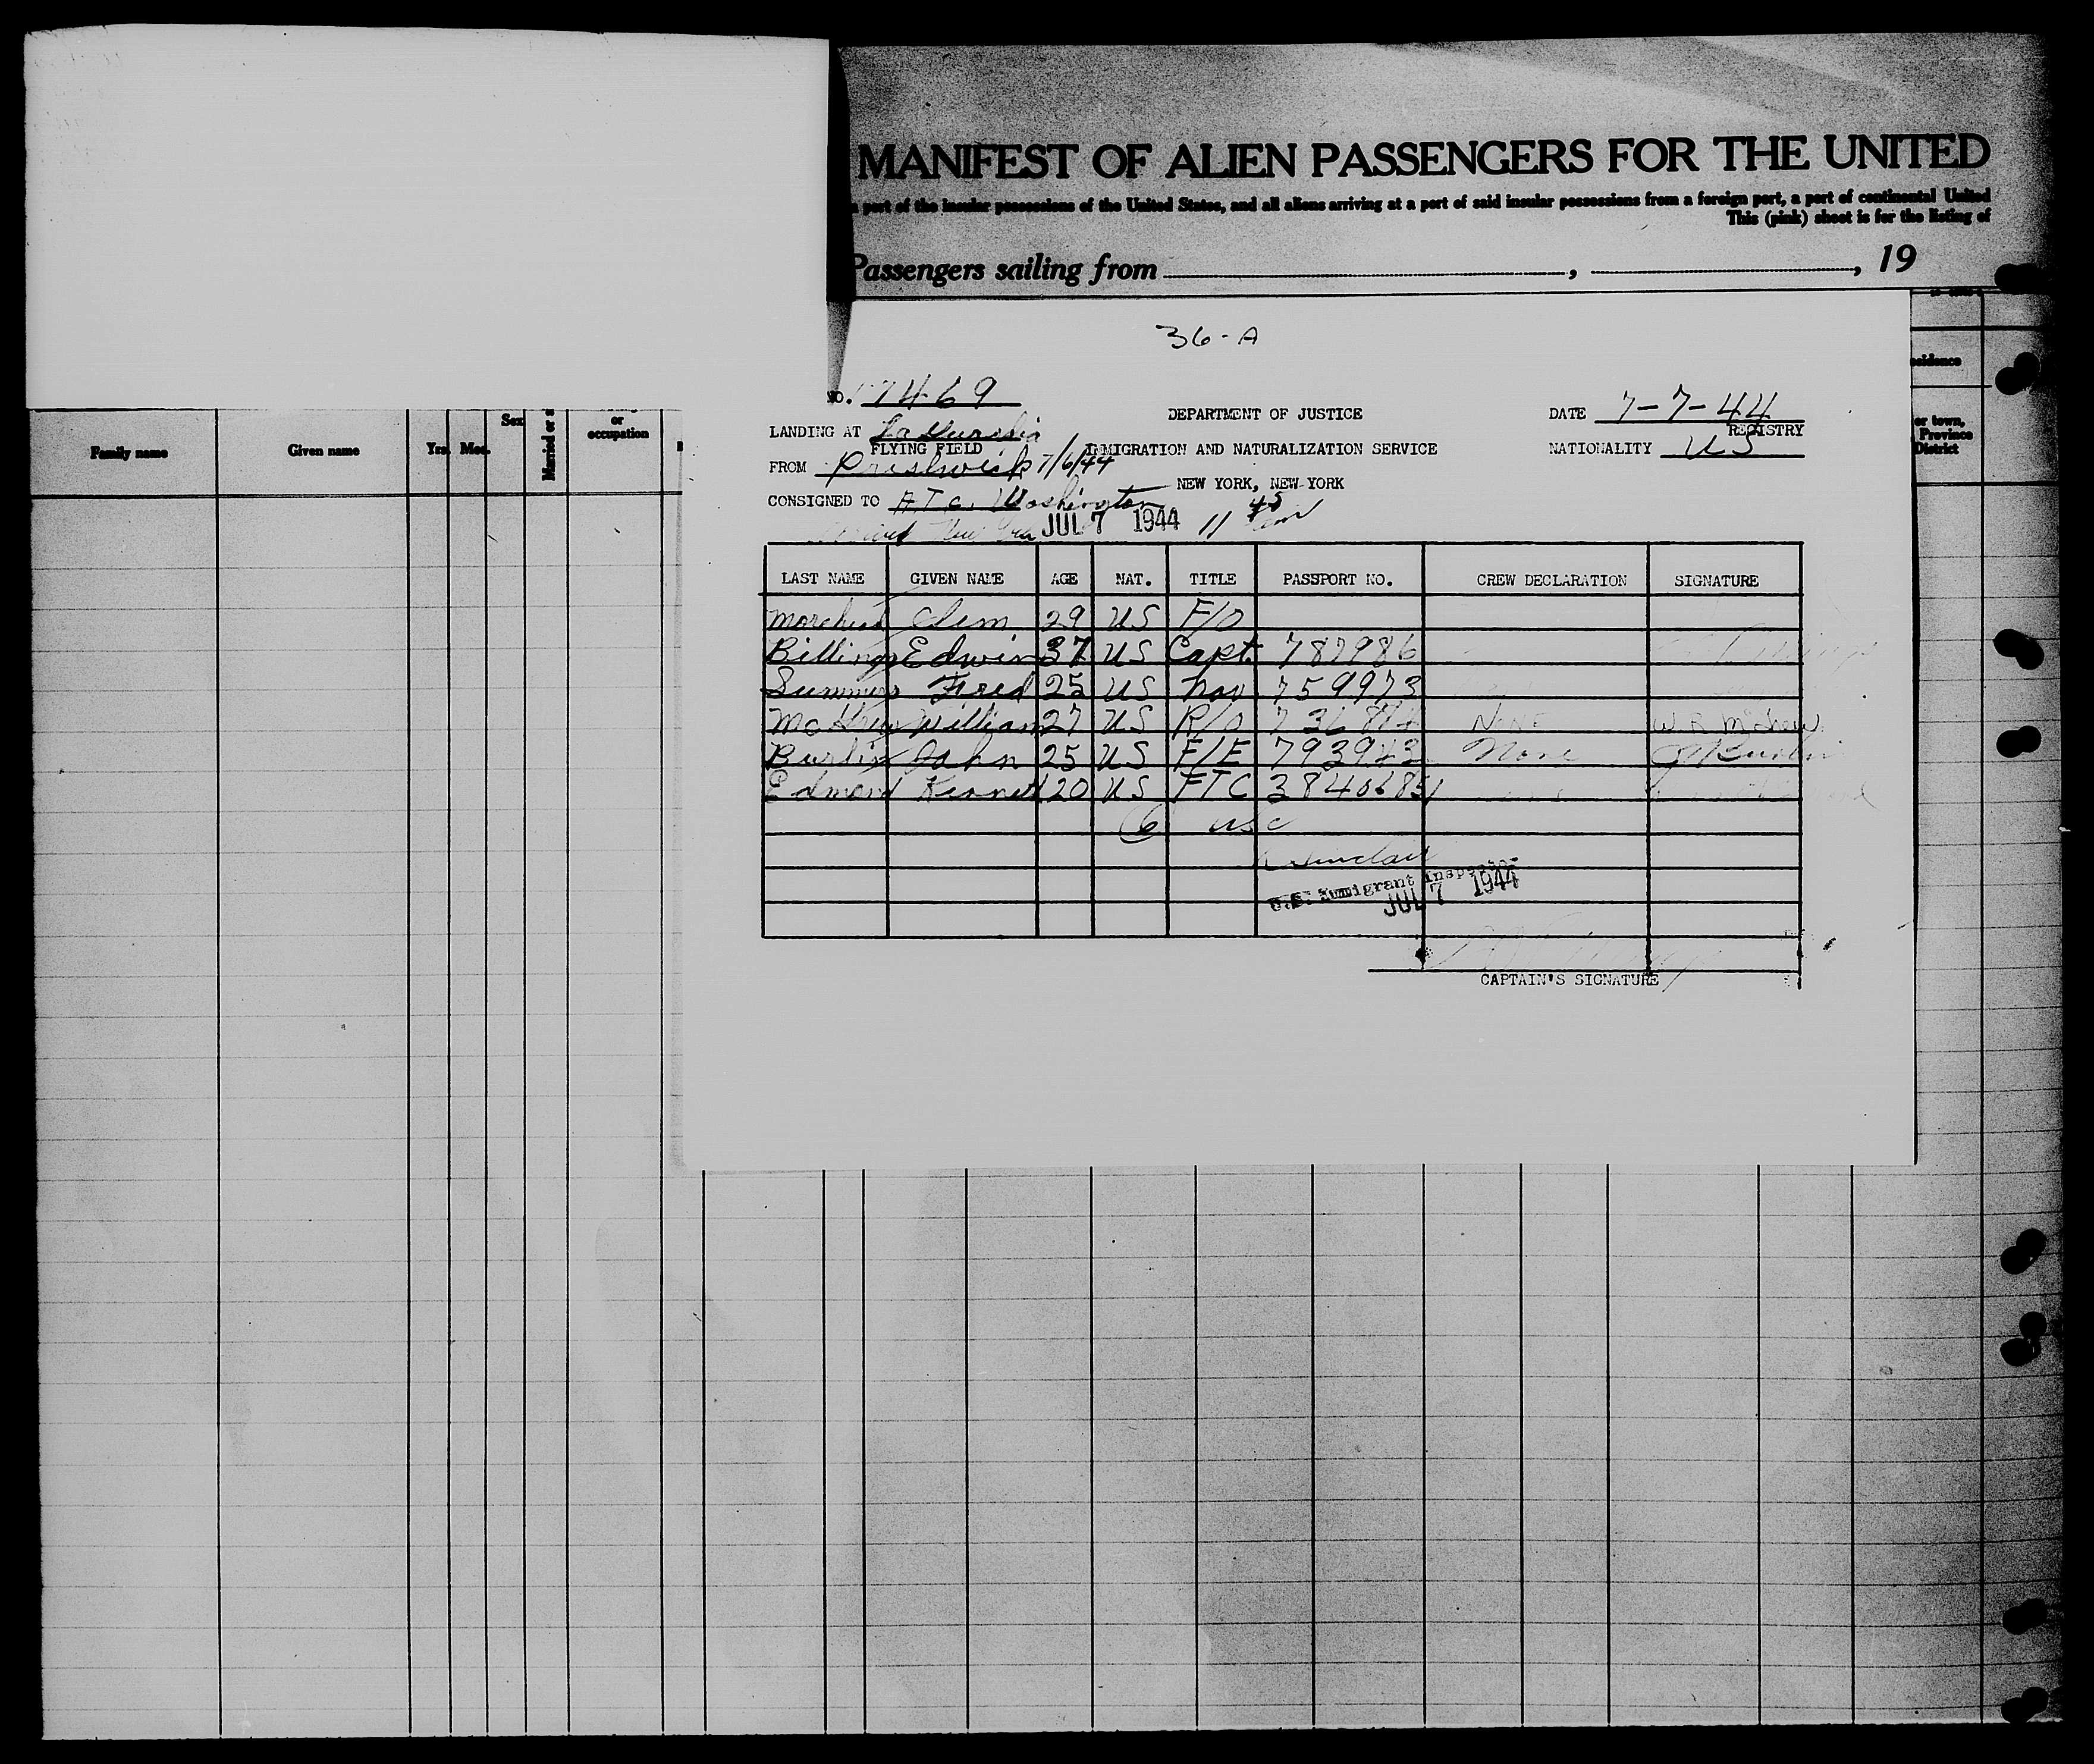 MANIFEST OF ALIEN PASSENGERS FOR THE UNITED
a port of the insular possessions of the United States, and all aliens arriving at a port of said insular possessions from a foreign port, a port of continental United
This (pink) sheet is for the listing of
Passengers sailing from , , 19
36-A
NO. 7469
DEPARTMENT OF JUSTICE
DATE 7-7-44
LANDING AT LaGuardia
REGISTRY
FLYING FIELD
IMMIGRATION AND NATURALIZATION SERVICE
NATIONALITY US
FROM Prestwick 7/6/44
NEW YORK, NEW YORK
CONSIGNED TO A.T.C. Washington
JUL 7 1944 11 45
LAST NAME GIVEN NAME AGE NAT. TITLE PASSPORT NO. CREW DECLARATION SIGNATURE
Clem 29 US F/O
Billings Edwin 37 US Capt. 787986
Summers Fred 25 US Nav 759973
William 27 US R/O None
John 25 US F/E 793943 None
Edmond Kenneth 20 US FTC 38406851
6 USC
Sinclair
U.S. Immigrant Inspector
JUL 7 1944
CAPTAIN'S SIGNATURE
Family name
Given name
Yrs.
Mos.
Sex
Married or s
or
occupation
esidence
or town,
Province
District